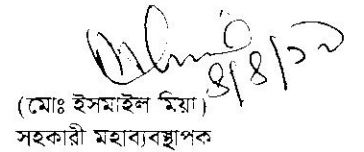 ৪/৪/১০
(মোঃ ইসমাইল মিয়া)
সহকারী মহাব্যবস্থাপক